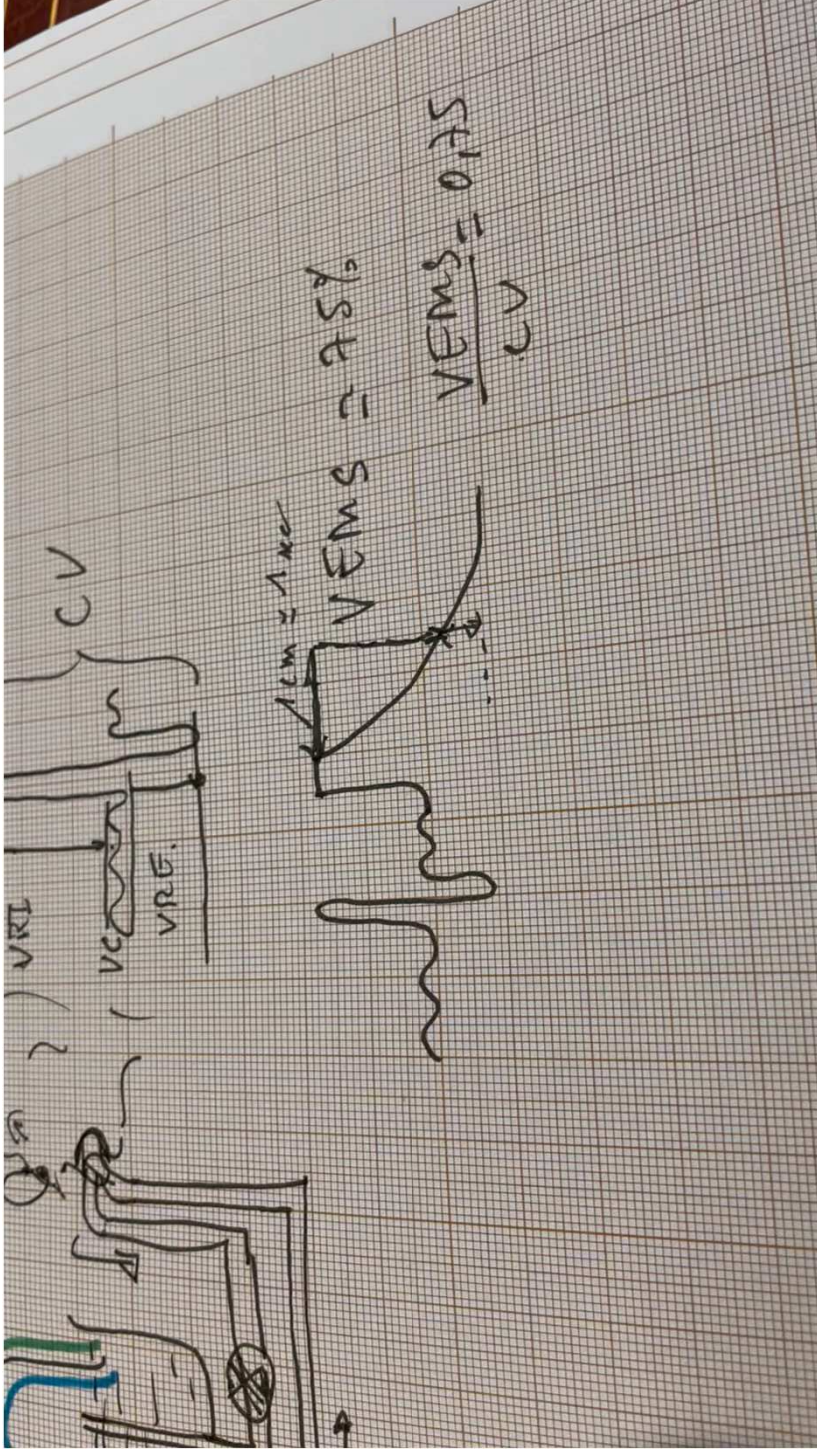 VRI
VC
VRE.
CV
1cm = 1 sec
VEMS = 75%
VEMS = 0,75
CV